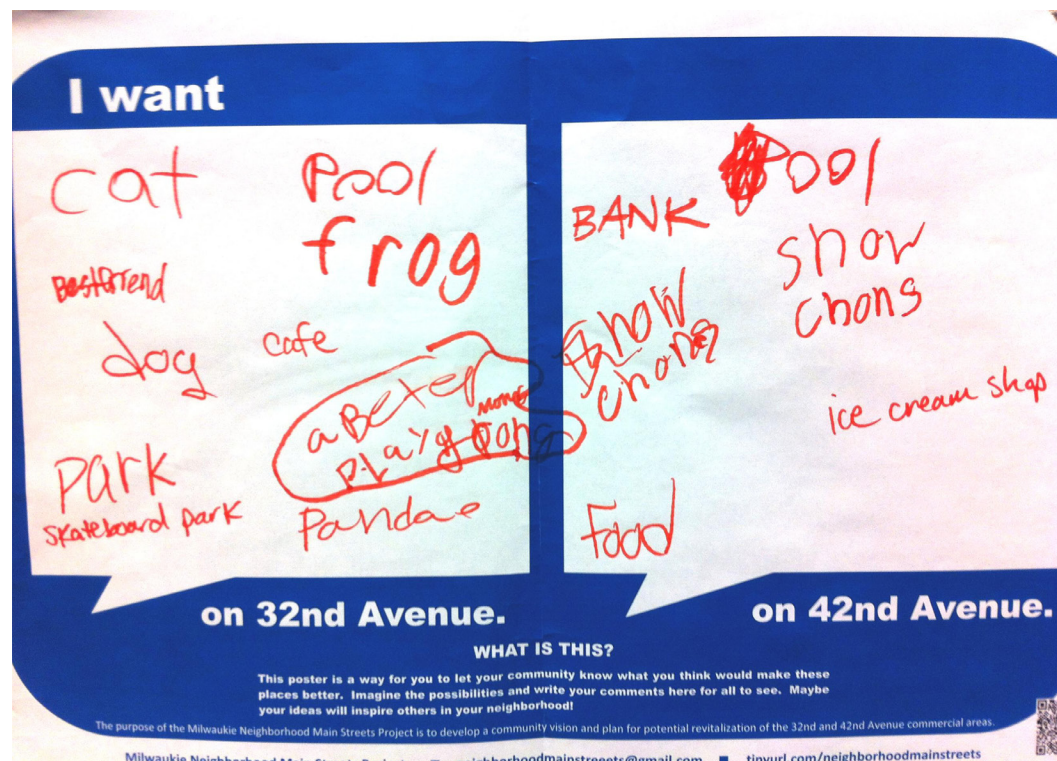 I want
cat
Pool
frog
Bestfriend
dog
cafe
a Beter
more
playgrong
park
skateboard park
Pandae
on 32nd Avenue.
BANK
Pool
show
chong
show
chons
ice cream shop
food
on 42nd Avenue.
WHAT IS THIS?
This poster is a way for you to let your community know what you think would make these
places better. Imagine the possibilities and write your comments here for all to see. Maybe
your ideas will inspire others in your neighborhood!
The purpose of the Milwaukie Neighborhood Main Streets Project is to develop a community vision and plan for potential revitalization of the 32nd and 42nd Avenue commercial areas.
Milwaukie Neighborhood Main Streets Project ■ neighborhoodmainstreets@gmail.com ■ tinyurl.com/neighborhoodmainstreets